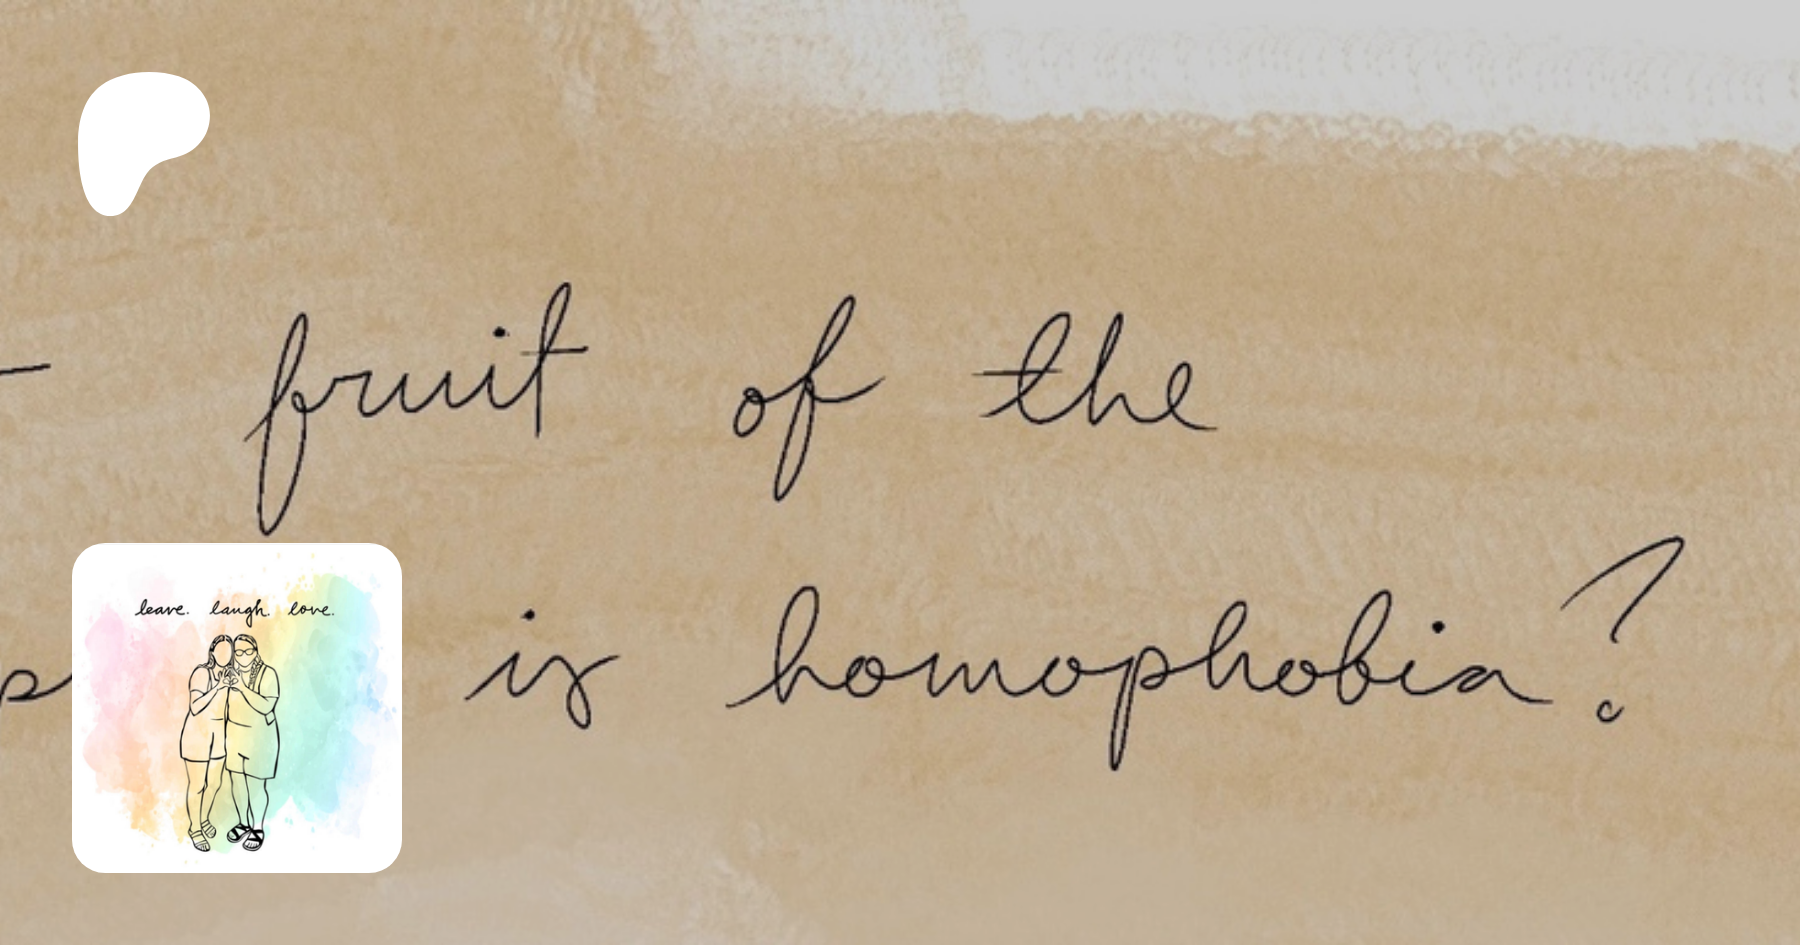 fruit of the
is homophobia?
leave. laugh. love.